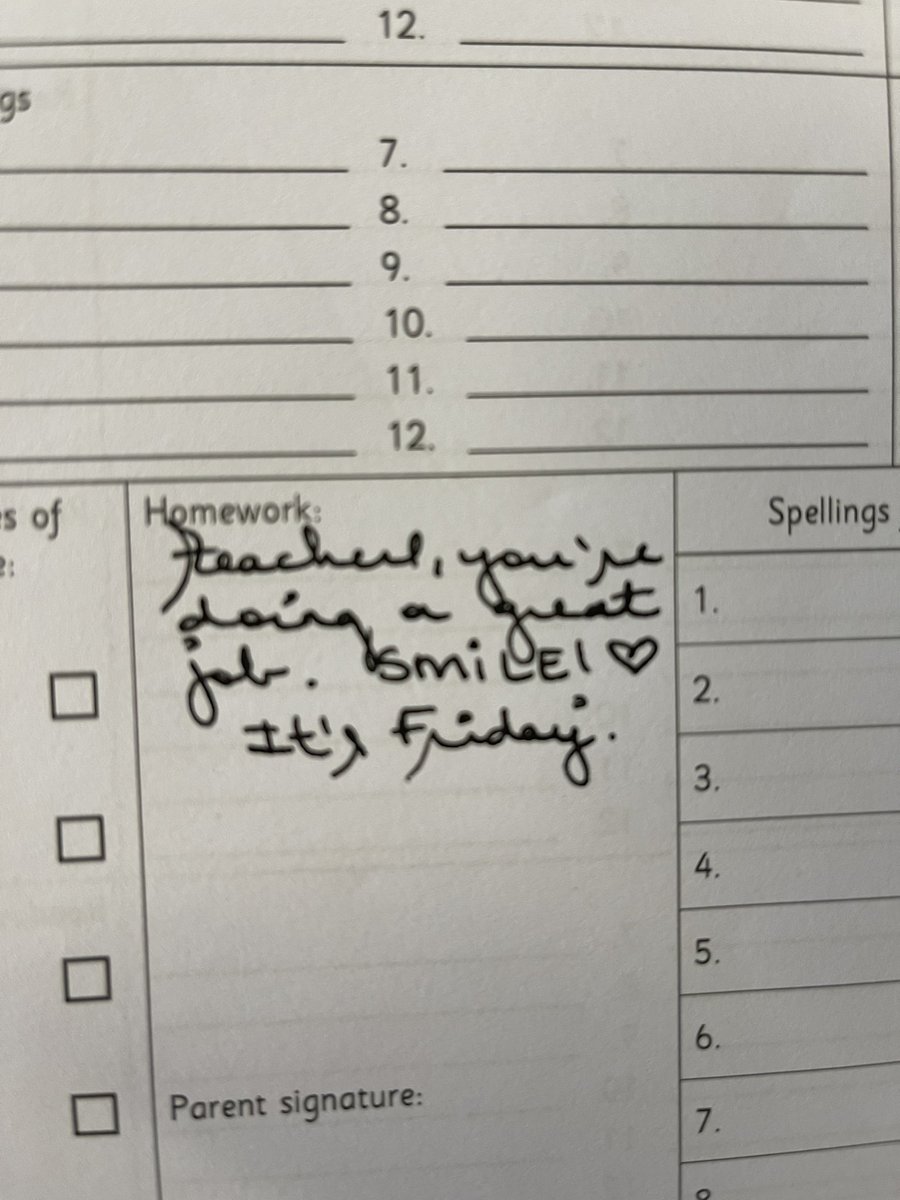 12.
gs
7.
8.
9.
10.
11.
12.
es of
e:
Homework:
teacher, you're
doing a great
job. SMiLE! ♡
It's Friday.
Parent signature:
Spellings
1.
2.
3.
4.
5.
6.
7.
8